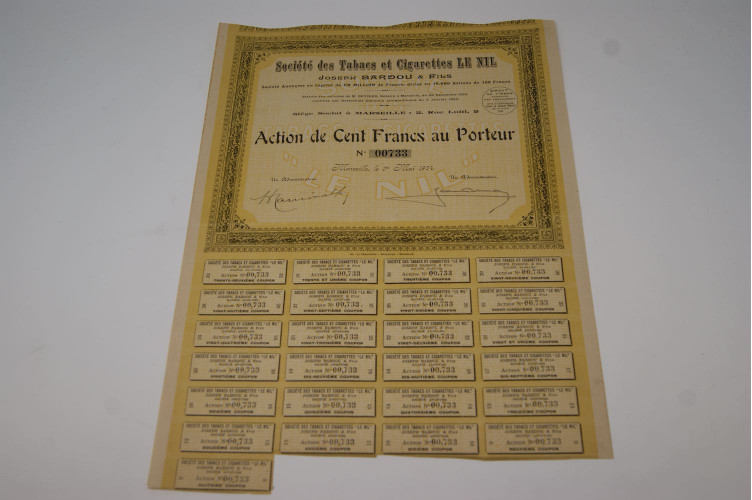 Société des Tabacs et Cigarettes LE NIL
JOSEPH BARDOU & FILS
Siège Social à MARSEILLE : 2, Rue Lulli, 2
Action de Cent Francs au Porteur
N° 00733
Marseille, le 1er Mai
Un Administrateur Un Administrateur
"LE NIL"
SOCIÉTÉ DES TABACS ET CIGARETTES "LE NIL" SOCIÉTÉ DES TABACS ET CIGARETTES "LE NIL" SOCIÉTÉ DES TABACS ET CIGARETTES "LE NIL" SOCIÉTÉ DES TABACS ET CIGARETTES "LE NIL"
JOSEPH BARDOU & FILS JOSEPH BARDOU & FILS JOSEPH BARDOU & FILS JOSEPH BARDOU & FILS
SOCIÉTÉ ANONYME SOCIÉTÉ ANONYME SOCIÉTÉ ANONYME SOCIÉTÉ ANONYME
ACTION N° 00,733 ACTION N° 00,733 ACTION N° 00,733 ACTION N° 00,733
TRENTE-DEUXIÈME COUPON TRENTE ET UNIÈME COUPON TRENTIÈME COUPON VINGT-NEUVIÈME COUPON
SOCIÉTÉ DES TABACS ET CIGARETTES "LE NIL" SOCIÉTÉ DES TABACS ET CIGARETTES "LE NIL" SOCIÉTÉ DES TABACS ET CIGARETTES "LE NIL" SOCIÉTÉ DES TABACS ET CIGARETTES "LE NIL"
JOSEPH BARDOU & FILS JOSEPH BARDOU & FILS JOSEPH BARDOU & FILS JOSEPH BARDOU & FILS
SOCIÉTÉ ANONYME SOCIÉTÉ ANONYME SOCIÉTÉ ANONYME SOCIÉTÉ ANONYME
ACTION N° 00,733 ACTION N° 00,733 ACTION N° 00,733 ACTION N° 00,733
VINGT-HUITIÈME COUPON VINGT-SEPTIÈME COUPON VINGT-SIXIÈME COUPON VINGT-CINQUIÈME COUPON
SOCIÉTÉ DES TABACS ET CIGARETTES "LE NIL" SOCIÉTÉ DES TABACS ET CIGARETTES "LE NIL" SOCIÉTÉ DES TABACS ET CIGARETTES "LE NIL" SOCIÉTÉ DES TABACS ET CIGARETTES "LE NIL"
JOSEPH BARDOU & FILS JOSEPH BARDOU & FILS JOSEPH BARDOU & FILS JOSEPH BARDOU & FILS
SOCIÉTÉ ANONYME SOCIÉTÉ ANONYME SOCIÉTÉ ANONYME SOCIÉTÉ ANONYME
ACTION N° 00,733 ACTION N° 00,733 ACTION N° 00,733 ACTION N° 00,733
VINGT-QUATRIÈME COUPON VINGT-TROISIÈME COUPON VINGT-DEUXIÈME COUPON VINGT ET UNIÈME COUPON
SOCIÉTÉ DES TABACS ET CIGARETTES "LE NIL" SOCIÉTÉ DES TABACS ET CIGARETTES "LE NIL" SOCIÉTÉ DES TABACS ET CIGARETTES "LE NIL" SOCIÉTÉ DES TABACS ET CIGARETTES "LE NIL"
JOSEPH BARDOU & FILS JOSEPH BARDOU & FILS JOSEPH BARDOU & FILS JOSEPH BARDOU & FILS
SOCIÉTÉ ANONYME SOCIÉTÉ ANONYME SOCIÉTÉ ANONYME SOCIÉTÉ ANONYME
ACTION N° 00,733 ACTION N° 00,733 ACTION N° 00,733 ACTION N° 00,733
VINGTIÈME COUPON DIX-NEUVIÈME COUPON DIX-HUITIÈME COUPON DIX-SEPTIÈME COUPON
SOCIÉTÉ DES TABACS ET CIGARETTES "LE NIL" SOCIÉTÉ DES TABACS ET CIGARETTES "LE NIL" SOCIÉTÉ DES TABACS ET CIGARETTES "LE NIL" SOCIÉTÉ DES TABACS ET CIGARETTES "LE NIL"
JOSEPH BARDOU & FILS JOSEPH BARDOU & FILS JOSEPH BARDOU & FILS JOSEPH BARDOU & FILS
SOCIÉTÉ ANONYME SOCIÉTÉ ANONYME SOCIÉTÉ ANONYME SOCIÉTÉ ANONYME
ACTION N° 00,733 ACTION N° 00,733 ACTION N° 00,733 ACTION N° 00,733
SEIZIÈME COUPON QUINZIÈME COUPON QUATORZIÈME COUPON TREIZIÈME COUPON
SOCIÉTÉ DES TABACS ET CIGARETTES "LE NIL" SOCIÉTÉ DES TABACS ET CIGARETTES "LE NIL" SOCIÉTÉ DES TABACS ET CIGARETTES "LE NIL" SOCIÉTÉ DES TABACS ET CIGARETTES "LE NIL"
JOSEPH BARDOU & FILS JOSEPH BARDOU & FILS JOSEPH BARDOU & FILS JOSEPH BARDOU & FILS
SOCIÉTÉ ANONYME SOCIÉTÉ ANONYME SOCIÉTÉ ANONYME SOCIÉTÉ ANONYME
ACTION N° 00,733 ACTION N° 00,733 ACTION N° 00,733 ACTION N° 00,733
DOUZIÈME COUPON ONZIÈME COUPON DIXIÈME COUPON NEUVIÈME COUPON
SOCIÉTÉ DES TABACS ET CIGARETTES "LE NIL"
JOSEPH BARDOU & FILS
SOCIÉTÉ ANONYME
ACTION N° 00,733
HUITIÈME COUPON